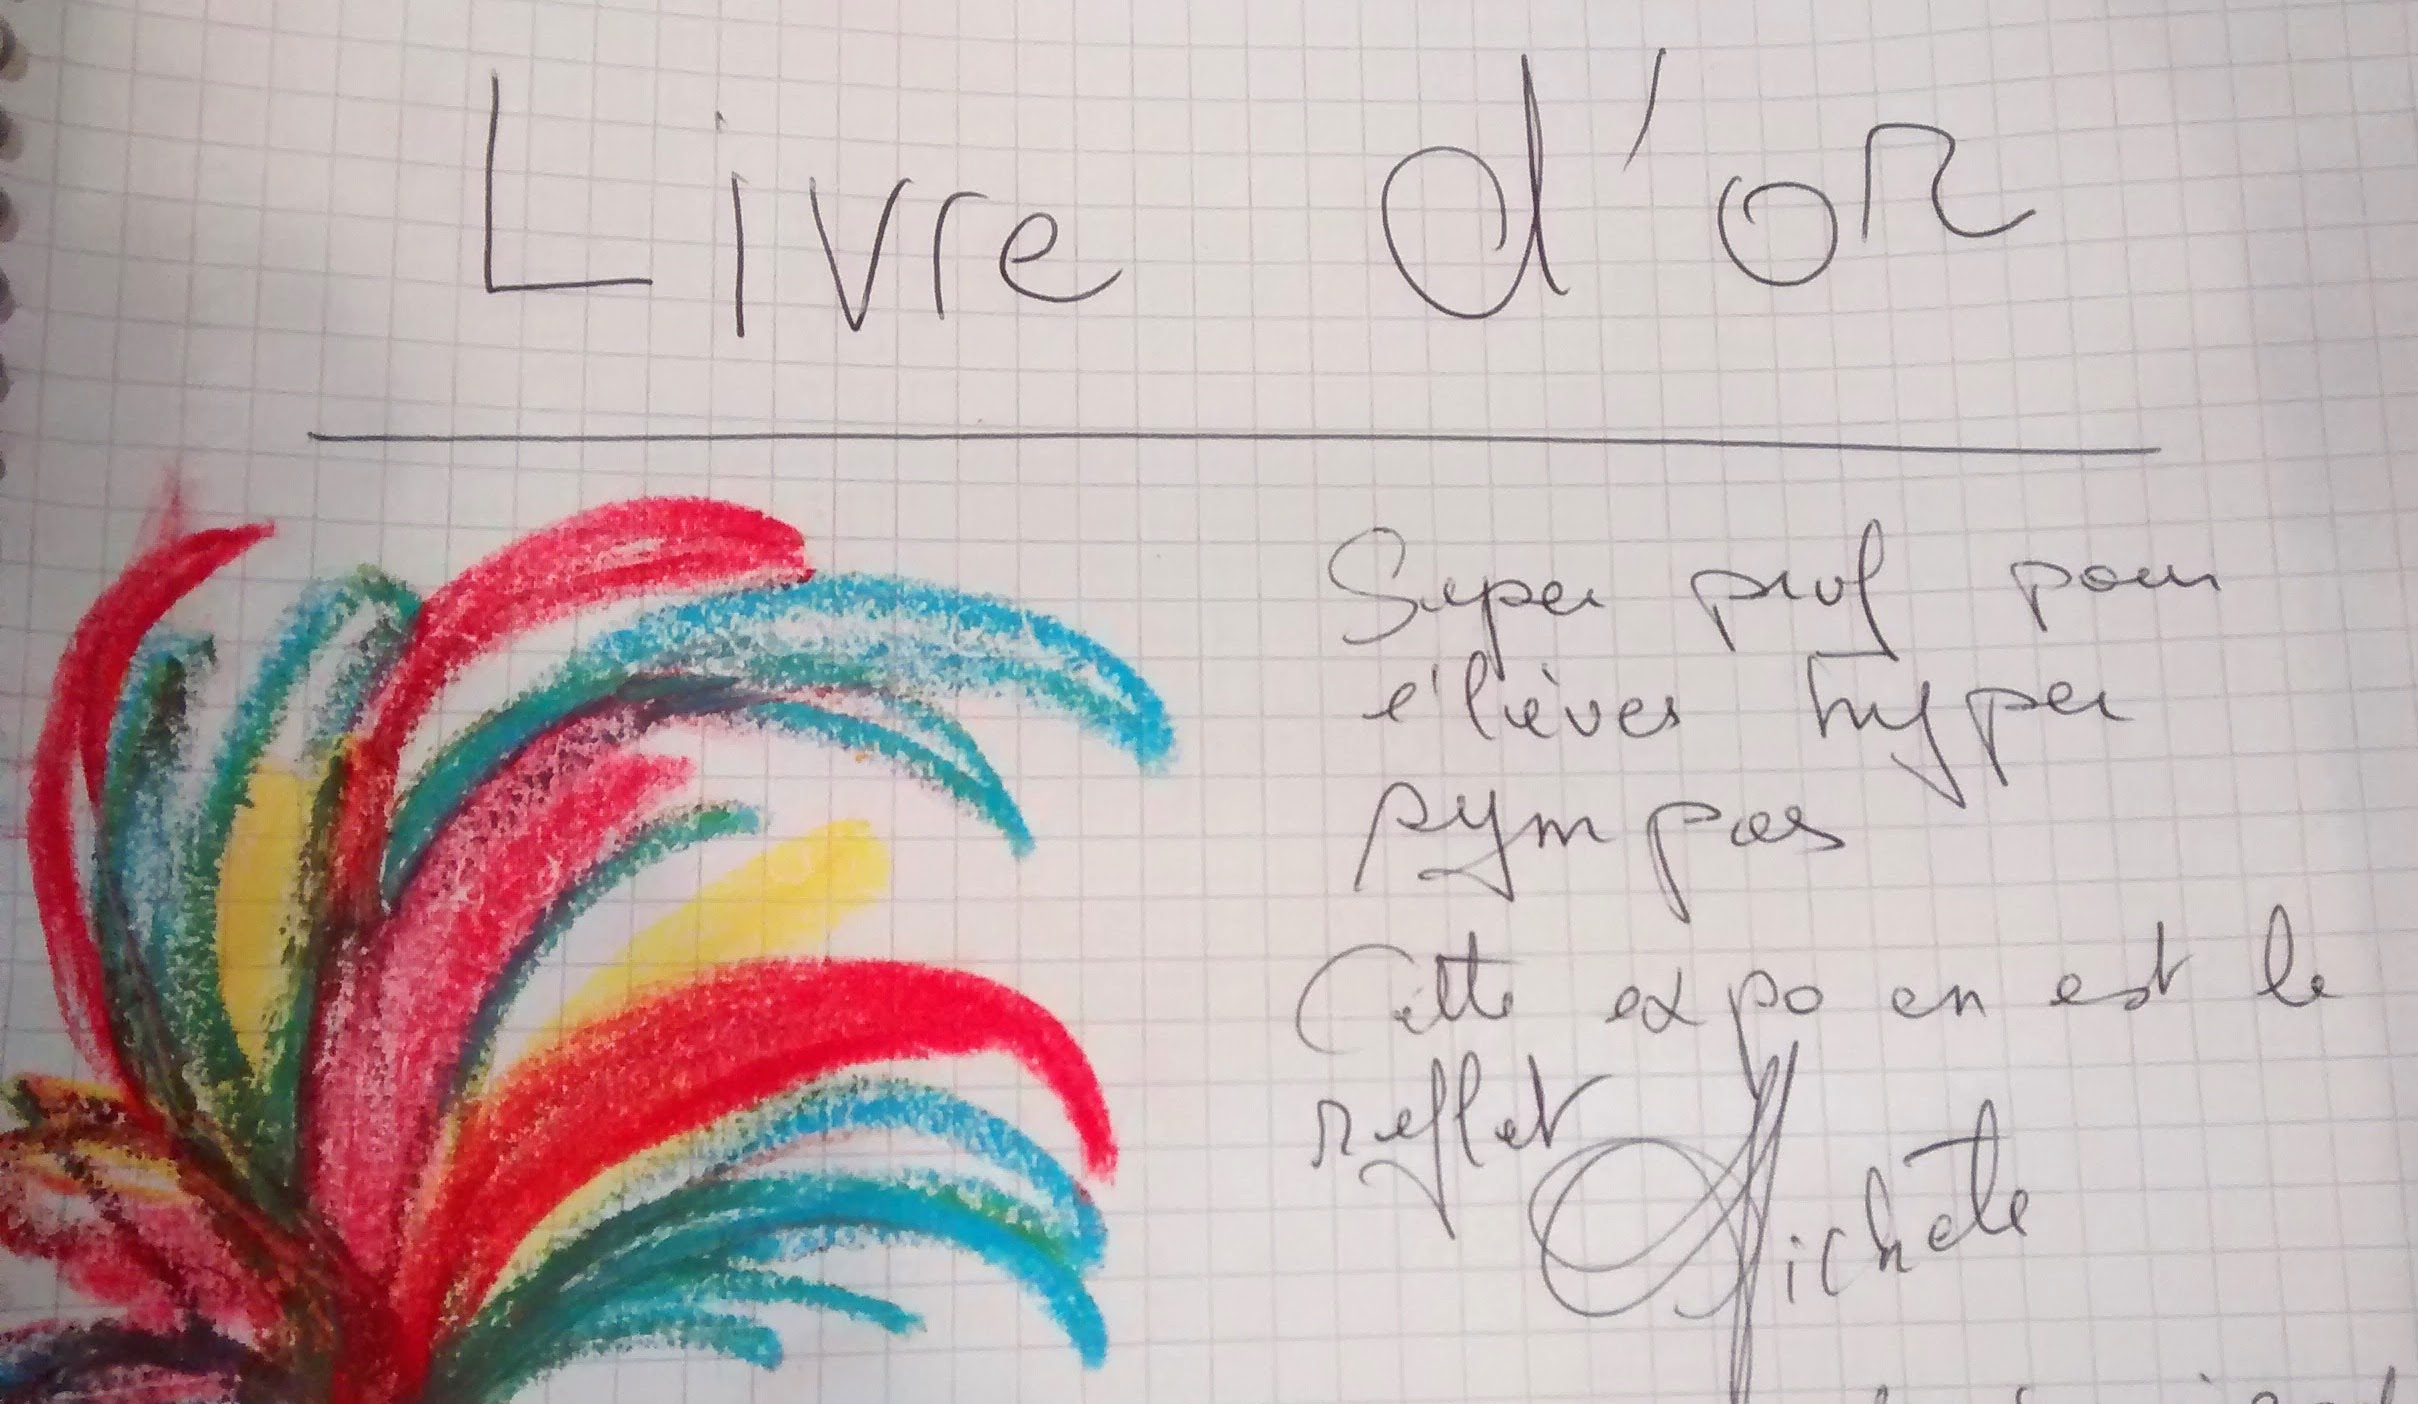 Livre d'or
Super prof pour
élèves hyper
sympas
Cette expo en est le
reflet